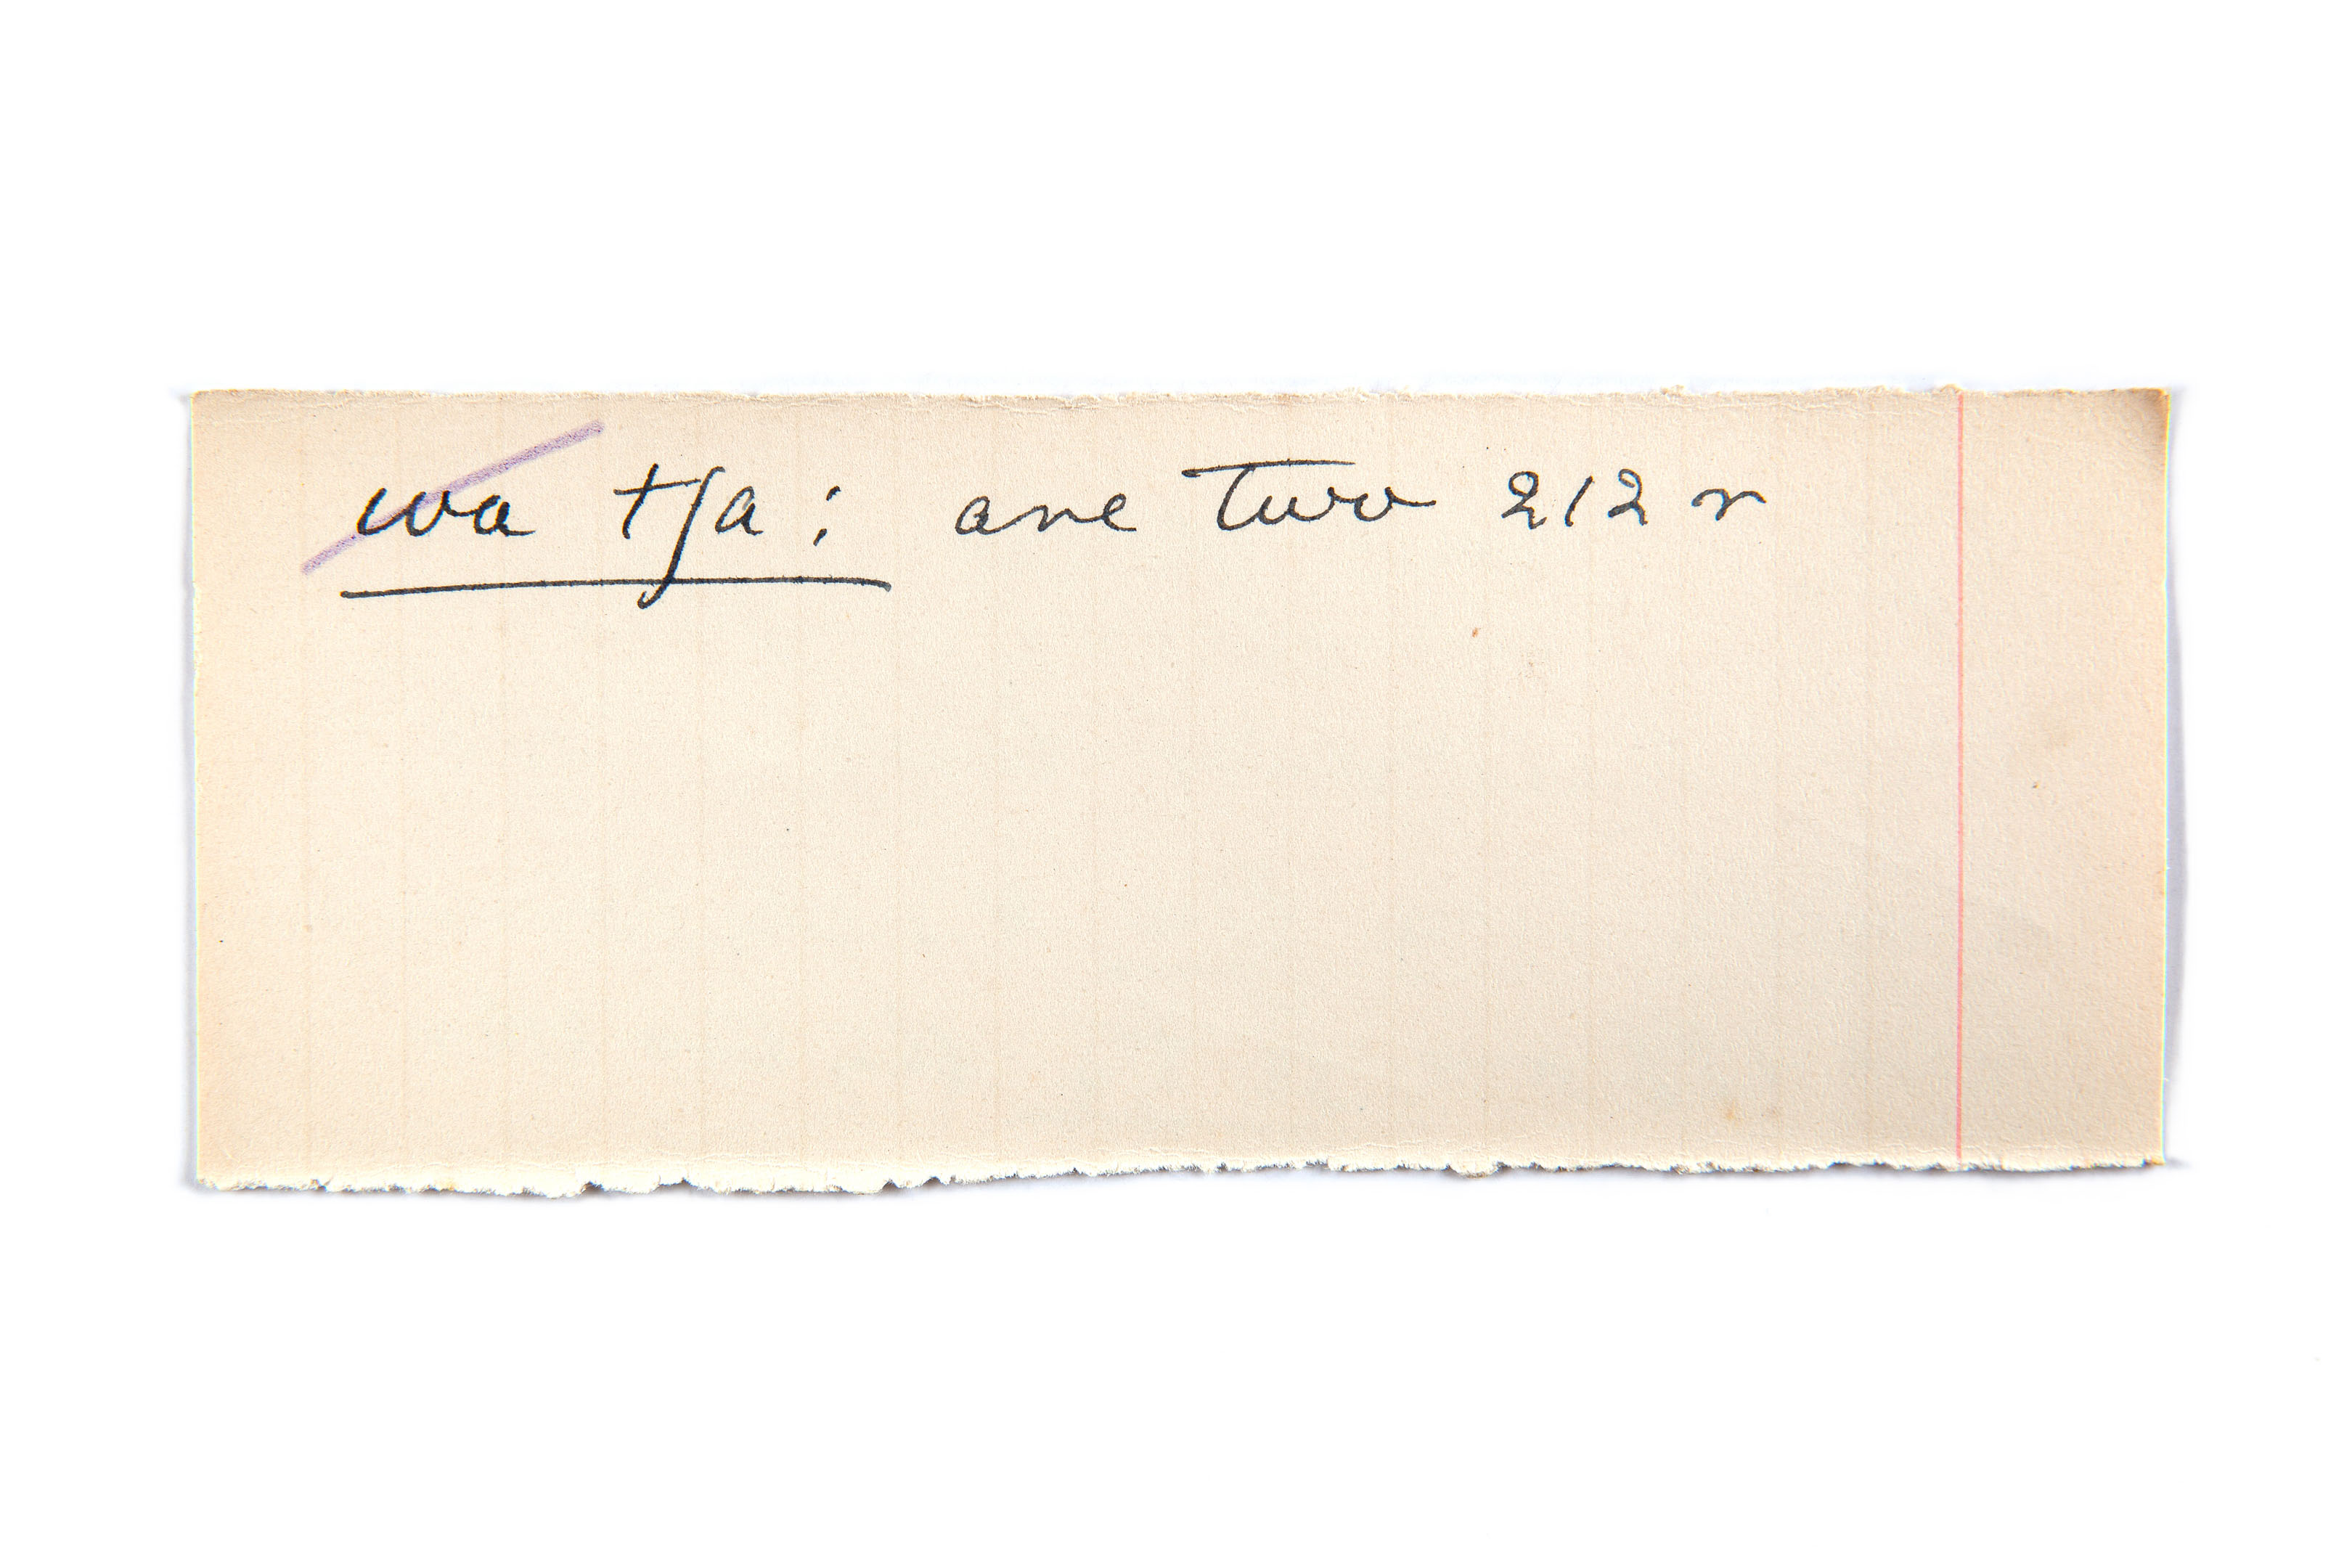 wa tʃa: are two 212 r